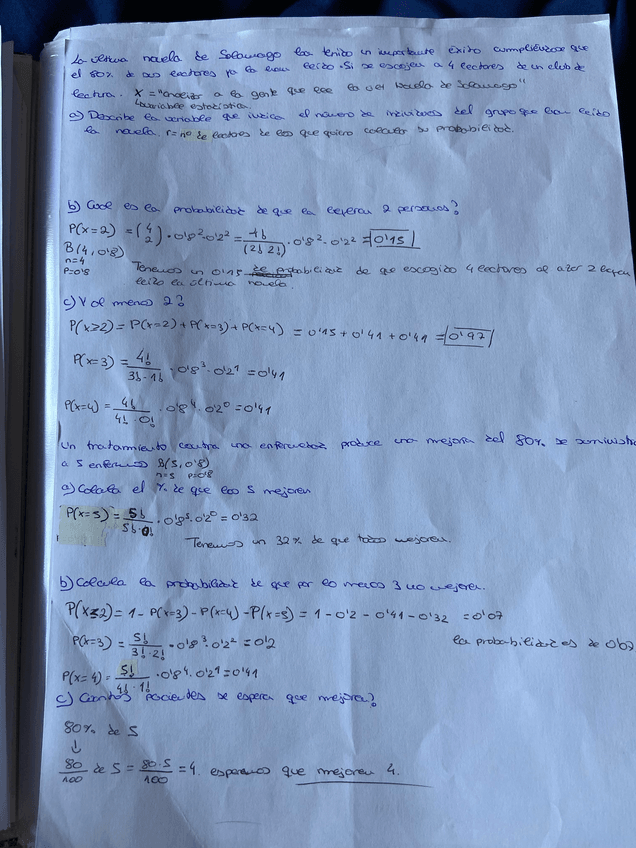 La última novela de Saramago ha tenido un importante éxito cumpliéndose que
el 80% de sus lectores ya la han leído. Si se escojen a 4 lectores de un club de
lectura. X = "analizar a la gente que lee la últ novela de Saramago"
↳variable estadística.
a) Describe la variable que indica el número de individuos del grupo que han leído
la novela. r = nº de lectores de los que quiero calcular su probabilidad.
b) Cual es la probabilidad de que la leyeran 2 personas?
P(x=2) = (4 2) · 0'8² · 0'2² = 4! / (2! 2!) · 0'8² · 0'2² = 0'15
B(4, 0'8)
n=4
p=0'8
Tenemos un 0'15 de probabilidad de que escogido 4 lectores al azar 2 hayan
leído la última novela.
c) Y al menos 2?
P(x≥2) = P(x=2) + P(x=3) + P(x=4) = 0'15 + 0'41 + 0'41 = 0'97
P(x=3) = 4! / 3! · 1! · 0'8³ · 0'2¹ = 0'41
P(x=4) = 4! / 4! · 0! · 0'8⁴ · 0'2⁰ = 0'41
Un tratamiento contra una enfermedad produce una mejoría del 80% se suministra
a 5 enfermos B(5, 0'8)
n=5 p=0'8
a) Calcula el % de que los 5 mejoren
P(x=5) = 5! / 5! · 0! · 0'8⁵ · 0'2⁰ = 0'32
Tenemos un 32% de que todos mejoren.
b) Calcula la probabilidad de que por lo menos 3 no mejoren.
P(x≤2) = 1 - P(x=3) - P(x=4) - P(x=5) = 1 - 0'2 - 0'41 - 0'32 = 0'07
P(x=3) = 5! / 3! · 2! · 0'8³ · 0'2² = 0'2
la probabilidad es de 0'07
P(x=4) = 5! / 4! · 1! · 0'8⁴ · 0'2¹ = 0'41
c) Cuantos pacientes se espera que mejora?
80% de 5
↓
80/100 de 5 = 80·5/100 = 4. esperamos que mejoren 4.